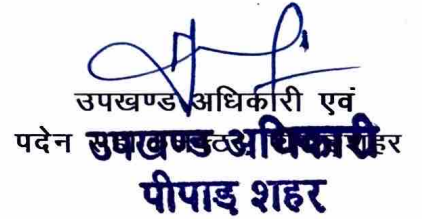 उपखण्ड अधिकारी एवं
पदेन
शहर
उपखण्ड अधिकारी
पीपाड़ शहर